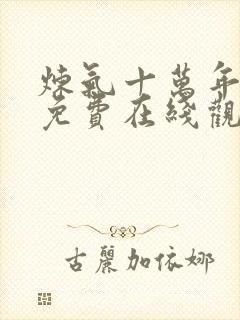 煉氣十萬年
免費在綫觀
古麗加依娜